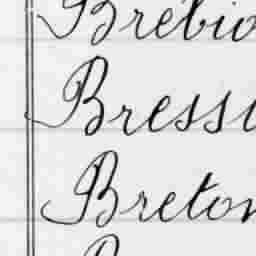 Brébio
Bressu
Breton